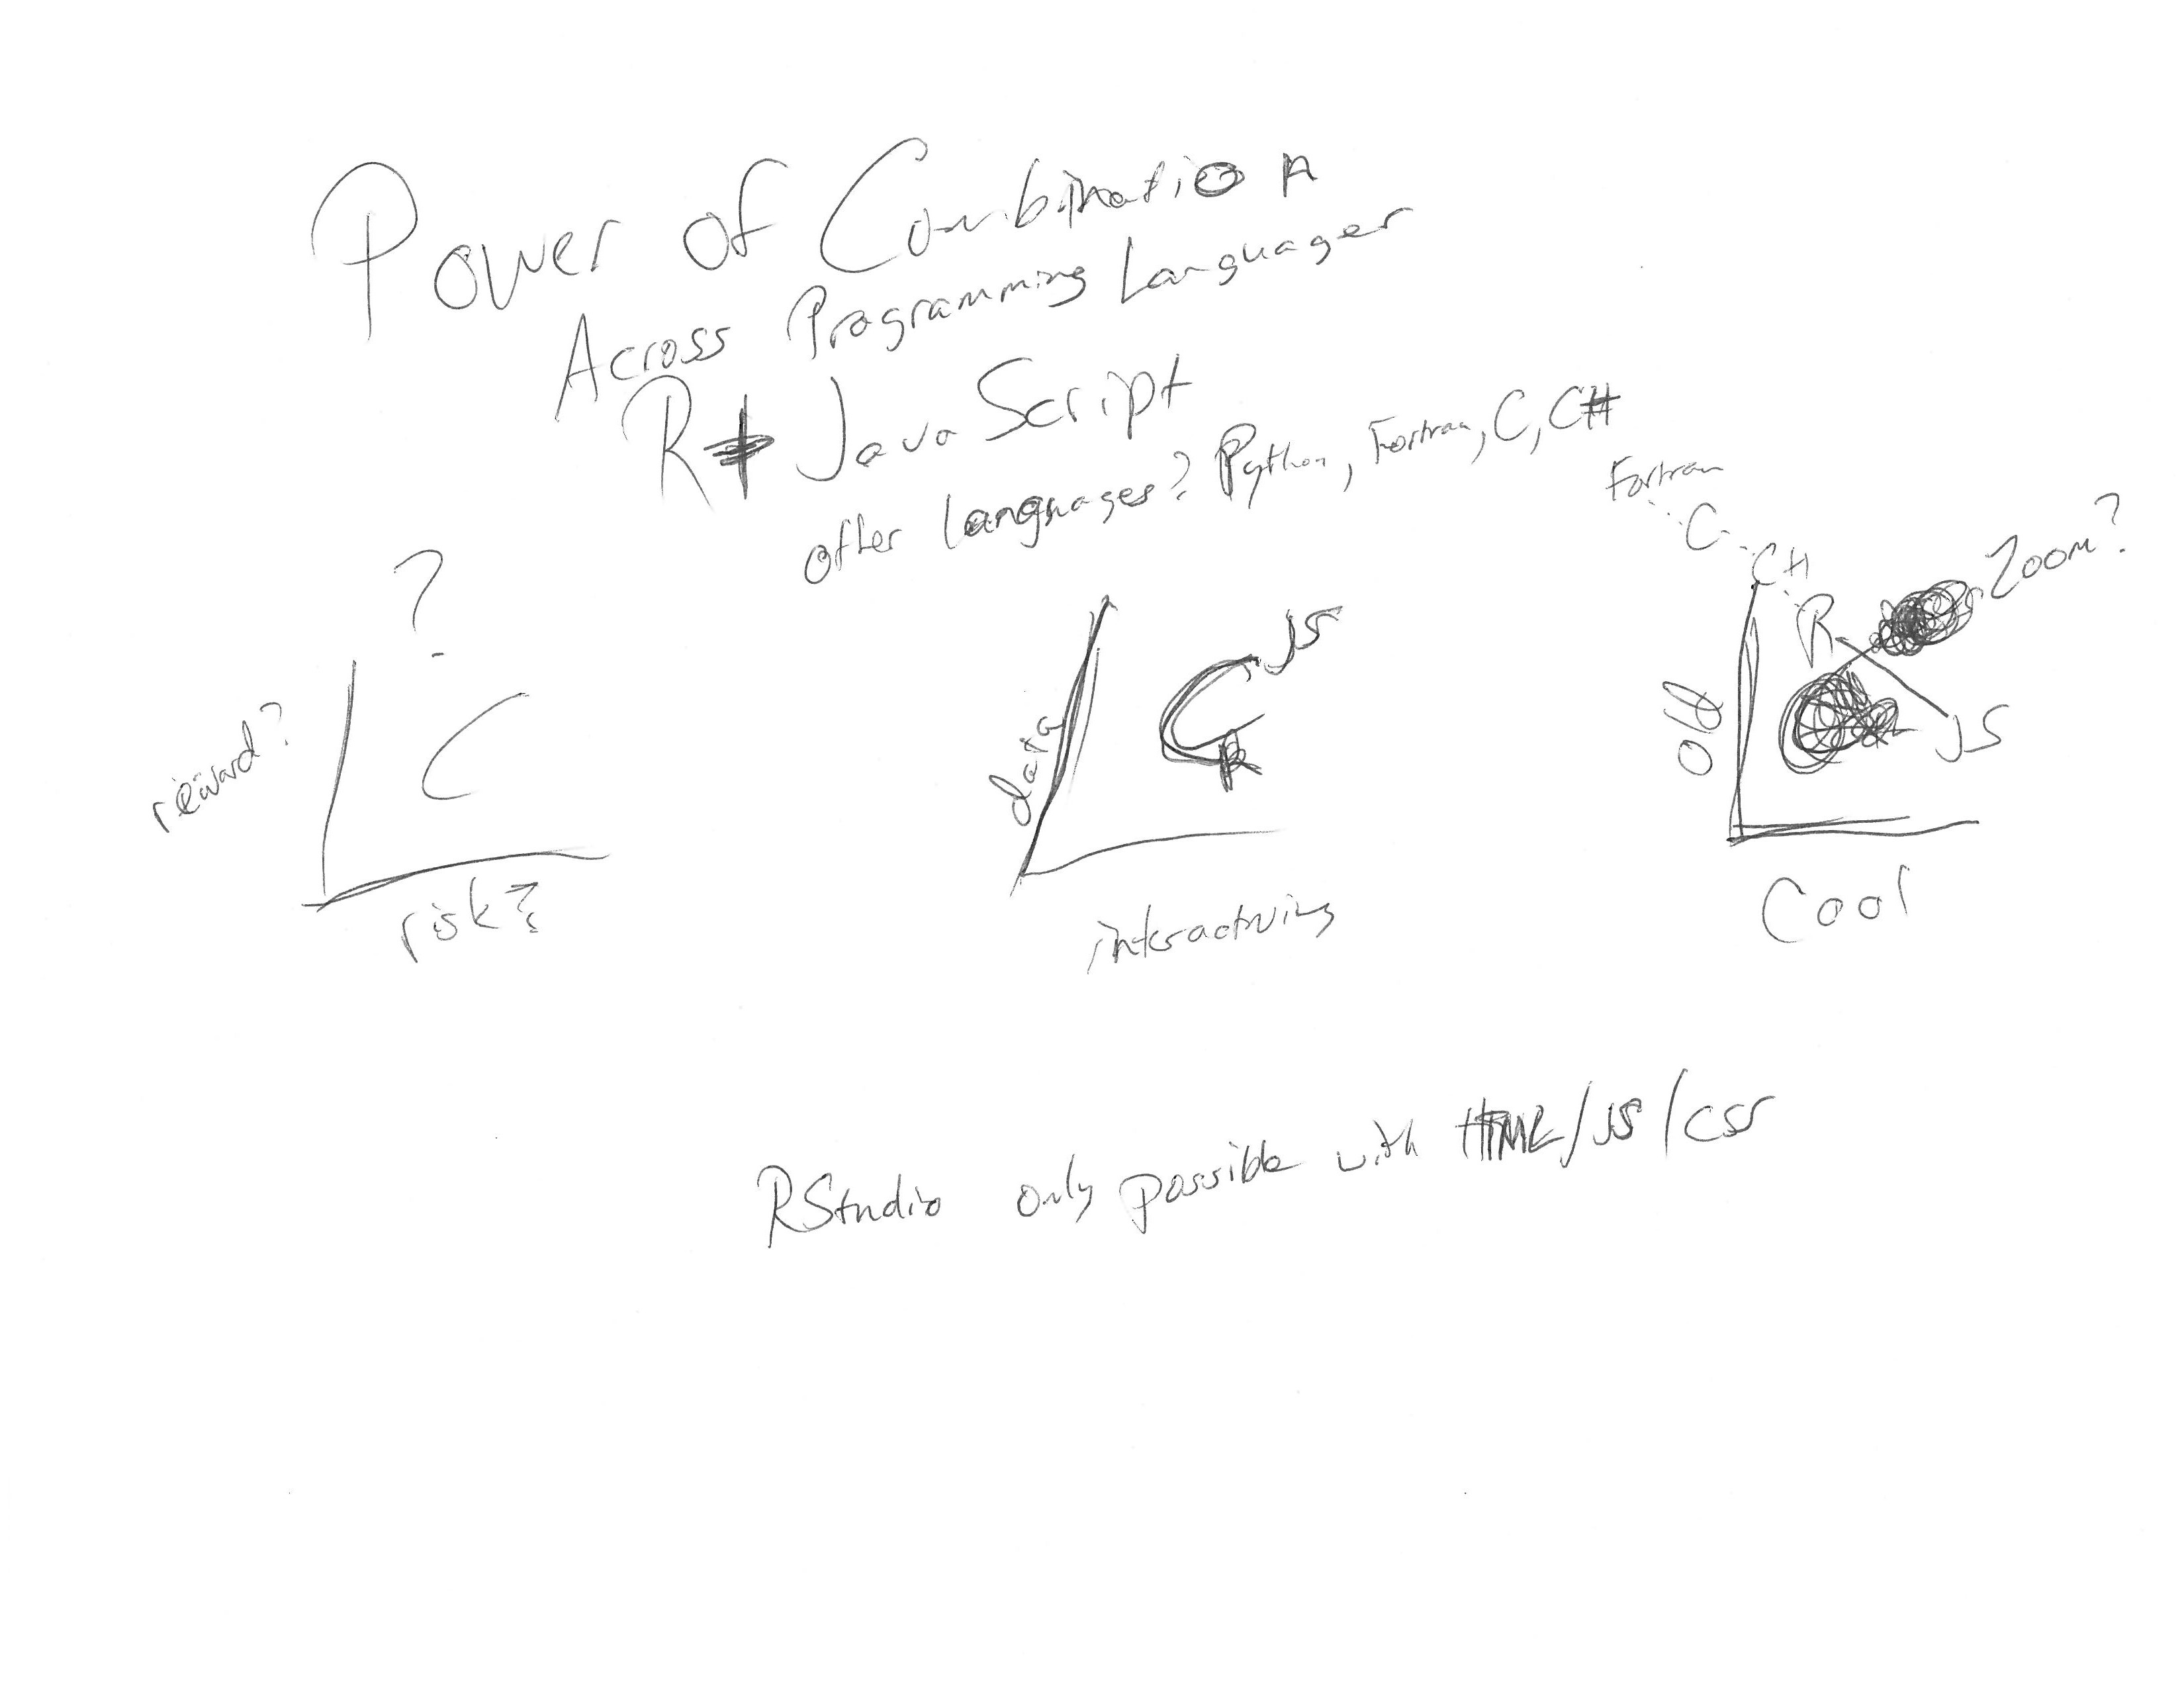 Power of Combination
Across Programming Languages
R + JavaScript
other languages? Python, Fortran, C, C#
?
reward?
risk?
data
JS
R
interactivity
Fortran
C
C#
R
Zoom?
Old
JS
Cool
RStudio only possible with HTML/JS/CSS